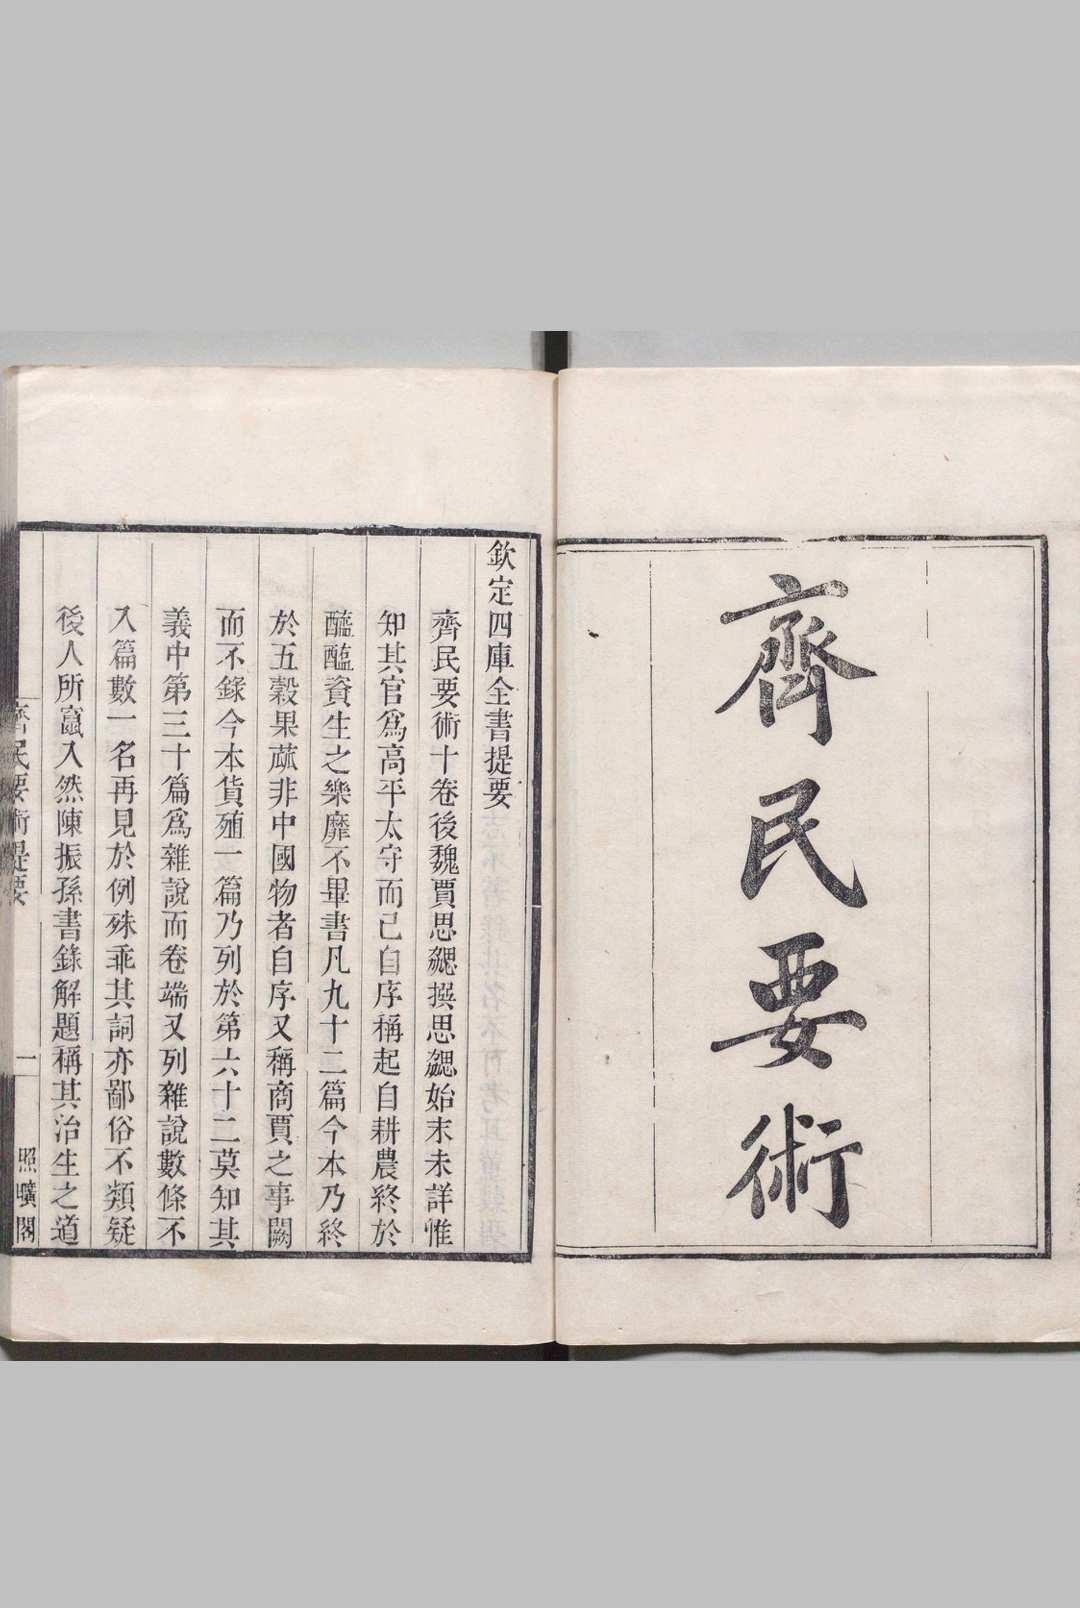 齊民要術
欽定四庫全書提要
齊民要術十卷後魏賈思勰撰思勰始末未詳惟
知其官爲高平太守而已自序稱起自耕農終於
醯醢資生之樂靡不畢書凡九十二篇今本乃終
於五穀果蓏非中國物者自序又稱商賈之事闕
而不錄今本貨殖一篇乃列於第六十二莫知其
義中第三十篇爲雜說而卷端又列雜說數條不
入篇數一名再見於例殊乖其詞亦鄙俗不類疑
後人所竄入然陳振孫書錄解題稱其治生之道
齊民要術提要
一
照曠閣